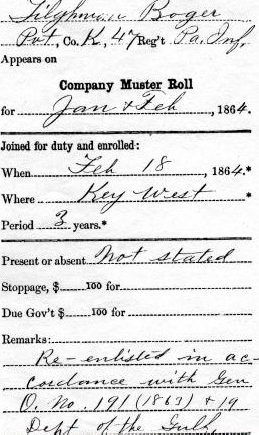 Tilghman Boger
Pvt., Co. K, 47 Reg't Pa. Inf.
Appears on
Company Muster Roll
for Jan & Feb, 1864.
Joined for duty and enrolled:
When Feb 18, 1864.*
Where Key West *
Period 3 years.*
Present or absent Not stated
Stoppage, $ 100 for
Due Gov't $ 100 for
Remarks:
Re-enlisted in ac-
cordance with Gen
O. No. 191 (1863) & 19
Dept of the Gulf